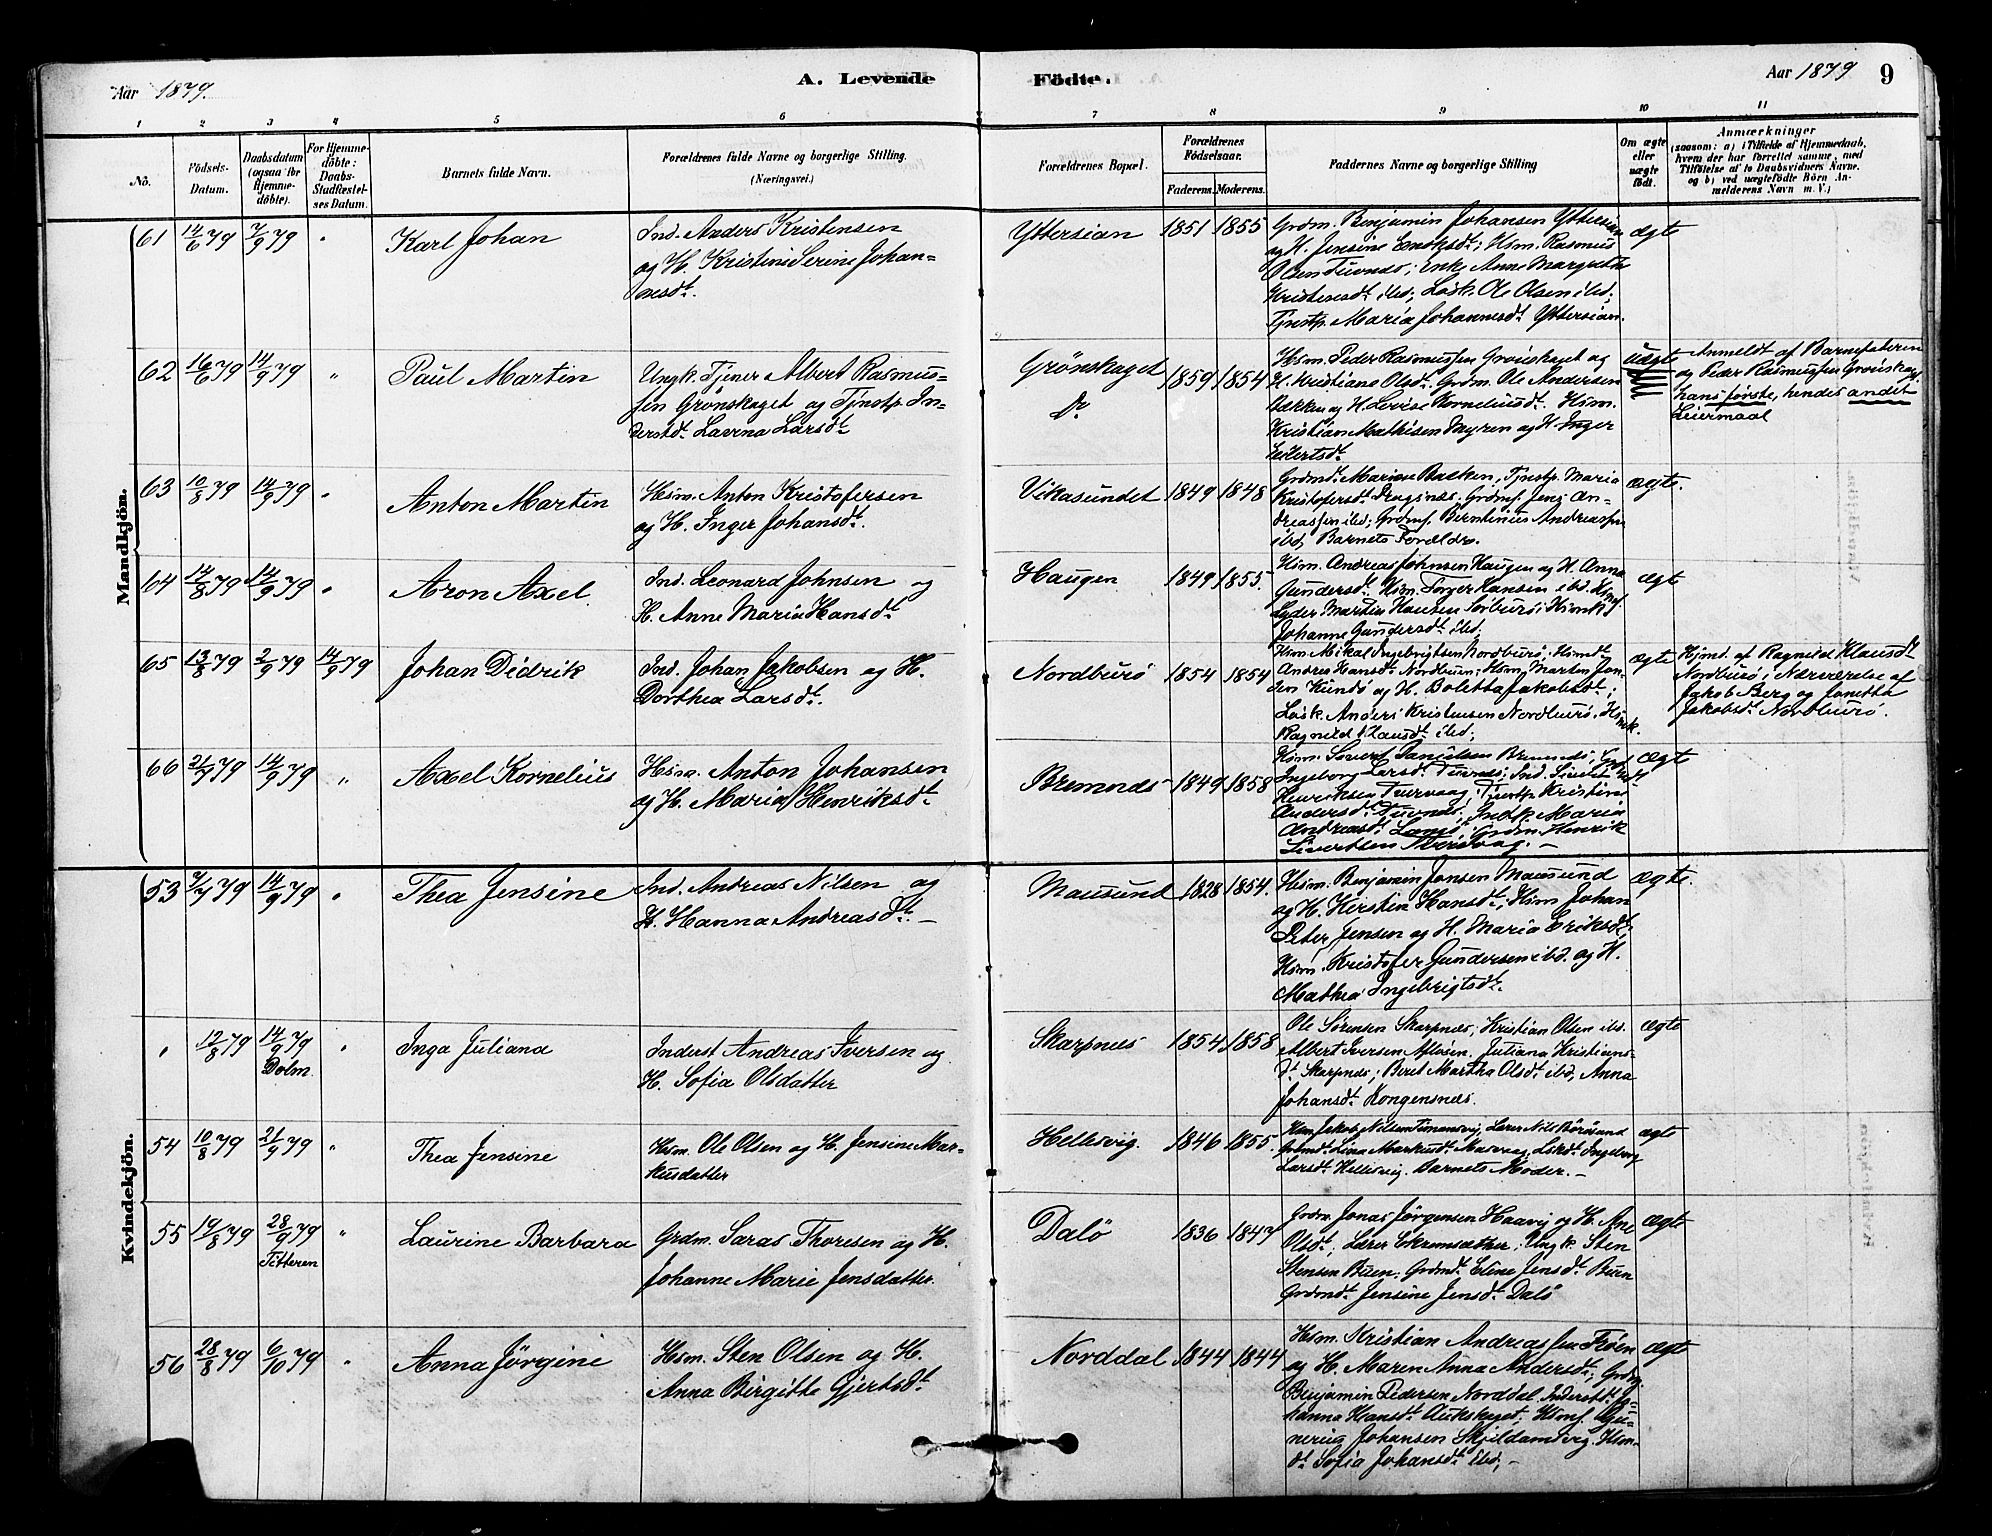 Aar 1879.
A. Levende
Födte.
Aar 1879
9
1 2 3 4 5 6 7 8 9 10 11
No.
Födsels-
Datum.
Daabsdatum
(ogsaa for
Hjemme-
döbte).
For Hjemme-
döbte:
Daabs-
Stadfæstel-
ses Datum.
Barnets fulde Navn.
Forældrenes fulde Navne og borgerlige Stilling.
(Næringsvei.)
Forældrenes Bopæl.
Forældrenes
Födselsaar.
Faderens. Moderens.
Faddernes Navne og borgerlige Stilling
Om ægte
eller
uægte
födt.
Anmærkninger
(saasom: a) i Tilfælde af Hjemmedaab,
hvem der har forrettet samme, med
Tilföielse af to Daabsvidners Navne.
og b) ved uægtefödte Börn An-
melderens Navn m. V.)
Mandkjön.
61 14/6 79 7/9 79 "
Karl Johan
Ind. Anders Kristensen
og H. Kristine Serine Johan-
nesdt.
Yttersian 1851 1855
Grdm. Benjamin Johansen Yttersian
og H. Jensine Enoksdt; Hsm. Rasmus
Olsen Tuvnes; Enke Anne Margrethe
Kristensdt ibd; Løsk. Ole Olsen ibd;
Tjnstp. Maria Johannesdt Yttersian.
ægte
62 16/6 79 14/9 79 "
Paul Martin
Ungk. Tjener Albert Rasmus-
sen Grønskaget og Tjnstp. In-
derstdt. Lavina Larsdt
Grönskaget
Do
1859 1854
Hsm. Peder Rasmussen Grønskaget og
H. Kristiane Olsdt. Grdm. Ole Andersen
Bækken og H. Lovise Korneliusdt. Hsm.
Kristian Mathisen Myren og H. Inger
Eilertsdt
uægte
Anmeldt af Barnefaderen
og Peder Rasmussen Grønskaget.
hans første, hendes andet
Leiermaal
63 10/8 79 14/9 79 "
Anton Martin
Hsm. Anton Kristofersen
og H. Inger Johansdt.
Vikasundet 1849 1848
Grdmdt. Marian Bakken, Tjnstp. Maria
Kristofersdt. Dragsnes. Grdms. Jens An-
dreassen ibd; Grdms. Berntinus Andreassen
ibd, Barnets Forældre.
ægte.
64 14/8 79 14/9 79 "
Aron Axel.
Ind. Leonard Johnsen og
H. Anne Maria Hansdt
Haugen 1849 1855.
Hsm. Andreas Johnsen Haugen og H. Anna
Gundersdt. Hsm. Torger Hansen ibd. Hsms.
Lyder Martin Hansen Sørburø; Hsmk.
Johanne Gundersdt ibd.
ægte
65 13/8 79 2/9 79 14/9 79
Johan Didrik
Ind. Johan Jakobsen og H.
Dorthea Larsdt.
Nordburö 1854 1854
Hsm. Mikal Ingebrigtsen Nordburø. Hsmdt
Andrea Hansdt Nordburø. Hsm. Marten Jen-
sen Kunsø og H. Boletta Jakobsdt;
Løsk. Anders Kristensen Nordburø. Hsmk.
Ragnild Klausdt ibd;
ægte
Hjmd. af Ragnild Klausdt
Nordburø i Nærværelse af
Jakob Berg og Janetta
Jakobsdt Nordburø.
66 21/7 79 14/9 79 "
Axel Kornelius
Hsm. Anton Johansen
og H. Maria Henriksdt
Bremnes 1849 1858
Hsm. Sivert Danielsen Bremnes, Grdmdt
Ingeborg Larsdt Tuvnes; Ind. Sivert
Henriksen Tuervaag; Tjnstp. Kristine
Andersdt Tuvnes; Indk. Maria
Andreasdt Lamø; Grdm. Henrik
Sivertsen Tuervaag. –
ægte
Kvindekjön.
53 7/7 79 14/9 79 "
Thea Jensine
Ind. Andreas Nilsen og
H. Hanna Andreasdt. –
Mausund 1828 1854.
Hsm. Benjamin Jensen Mausund
og H. Kerstin Hansdt; Hsm Johan
Peter Jensen og H. Maria Eriksdt;
Hsm. Kristofer Gundersen ibd. og H.
Mathea Ingebrigtsdt.
ægte.
" 12/8 79 14/9 79 "
Dolm.
Inga Juliana
Inderst Andreas Iversen og
H. Sofia Olsdatter
Skarpnes 1854 1858
Ole Sørensen Skarpnes; Kristian Olsen ibd.
Albert Iversen Afløsen. Juliana Kristians-
dt. Skarpnes; Beret Martha Olsdt ibd, Anna
Johansdt. Kongensnes.
ægte
54 10/8 79 21/9 79 "
Thea Jensine
Hsm. Ole Olsen og H. Jensine Mar-
kusdatter
Hellesvig. 1846 1855.
Hsm. Jakob Nilsen Timansvig, Lærer Nils Börösund
Grdmdt. Lina Markusdt. Masvaag, Løskdt. Ingeborg
Larsdt. Hellesvig. Barnets Moder. –
ægte
55 19/8 79 28/9 79 "
Titteren
Laurine Barbara
Grdm. Saras Thoresen og H.
Johanne Marie Jensdatter.
Dalö 1836 1847
Grdm. Jonas Jørgensen Haavig og H. Ane
Olsdt; Lærer Ekremsæther; Ungk. Sten
Stensen Buen; Grdmdt. Eline Jensdt. Buen
Grdmdt. Jensine Jensdt. Dalö
ægte
56 28/8 79 6/10 79 "
Anna Jörgine
Hsm. Sten Olsen og H.
Anna Birgitte Gjertsdt.
Norddal 1844 1844
Hsm. Kristian Andreassen Frøen
og H. Maren Anna Andersdt; Grdm.
Benjamin Pedersen Norddal. Inderstdt. Jo-
hanna Hansdt. Aukskaget; Hsms. Gu-
nerius Johansen Skjeldamsvig. Hsm-
dt. Sofia Johansdt. ibd; –
ægte